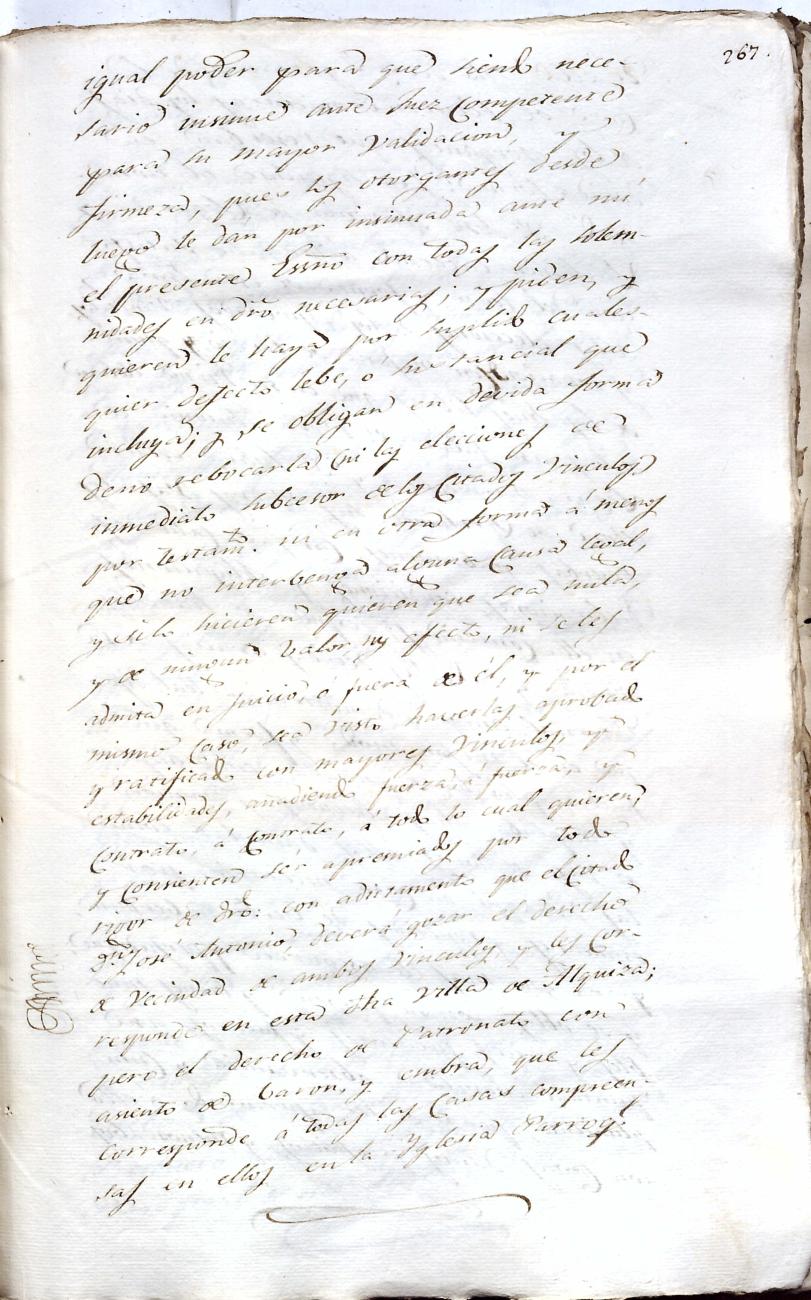 267.
igual poder para que siendo nece-
sario insinue ante Juez Competente
para su mayor Validacion, y
firmeza, pues los otorgantes desde
luego le dan por insinuada ante mi
el presente Essno con todas las solem-
nidades en dro necesarias; y piden, y
quieren se haya por suplido cuales-
quier defecto lebe, o sustancial que
incluya; y se obligan en devida forma
de no rebocarla ni las elecciones de
inmediato subcesor de los Citados Vinculos
por testamto. ni en otra forma á menos
que no interbenga alguna Causa legal,
y si lo hicieren quieren que sea nula,
y de ningun valor ny efecto, ni se les
admita en Juicio, ó fuera de él, y por el
mismo Caso, sea visto haverlas aprobado
y ratificado con mayores Vinculos, y
estabilidades, añadiendo fuerza, á fuerza, y
Contrato, á Contrato, á todo lo cual quieren,
y Consienten ser apremiados por todo
rigor de dro: con adictamento que el Citado
Dn José Antonio, deverá gozar el derecho
de Vecindad de ambos Vinculos y les Cor-
responde en esta dha Villa de Alquiza;
pero el derecho de Patronato con
asiento de baron, y embra, que les
Corresponde á todas las Casas compreen-
sas en ellos en la Yglesia Parroql